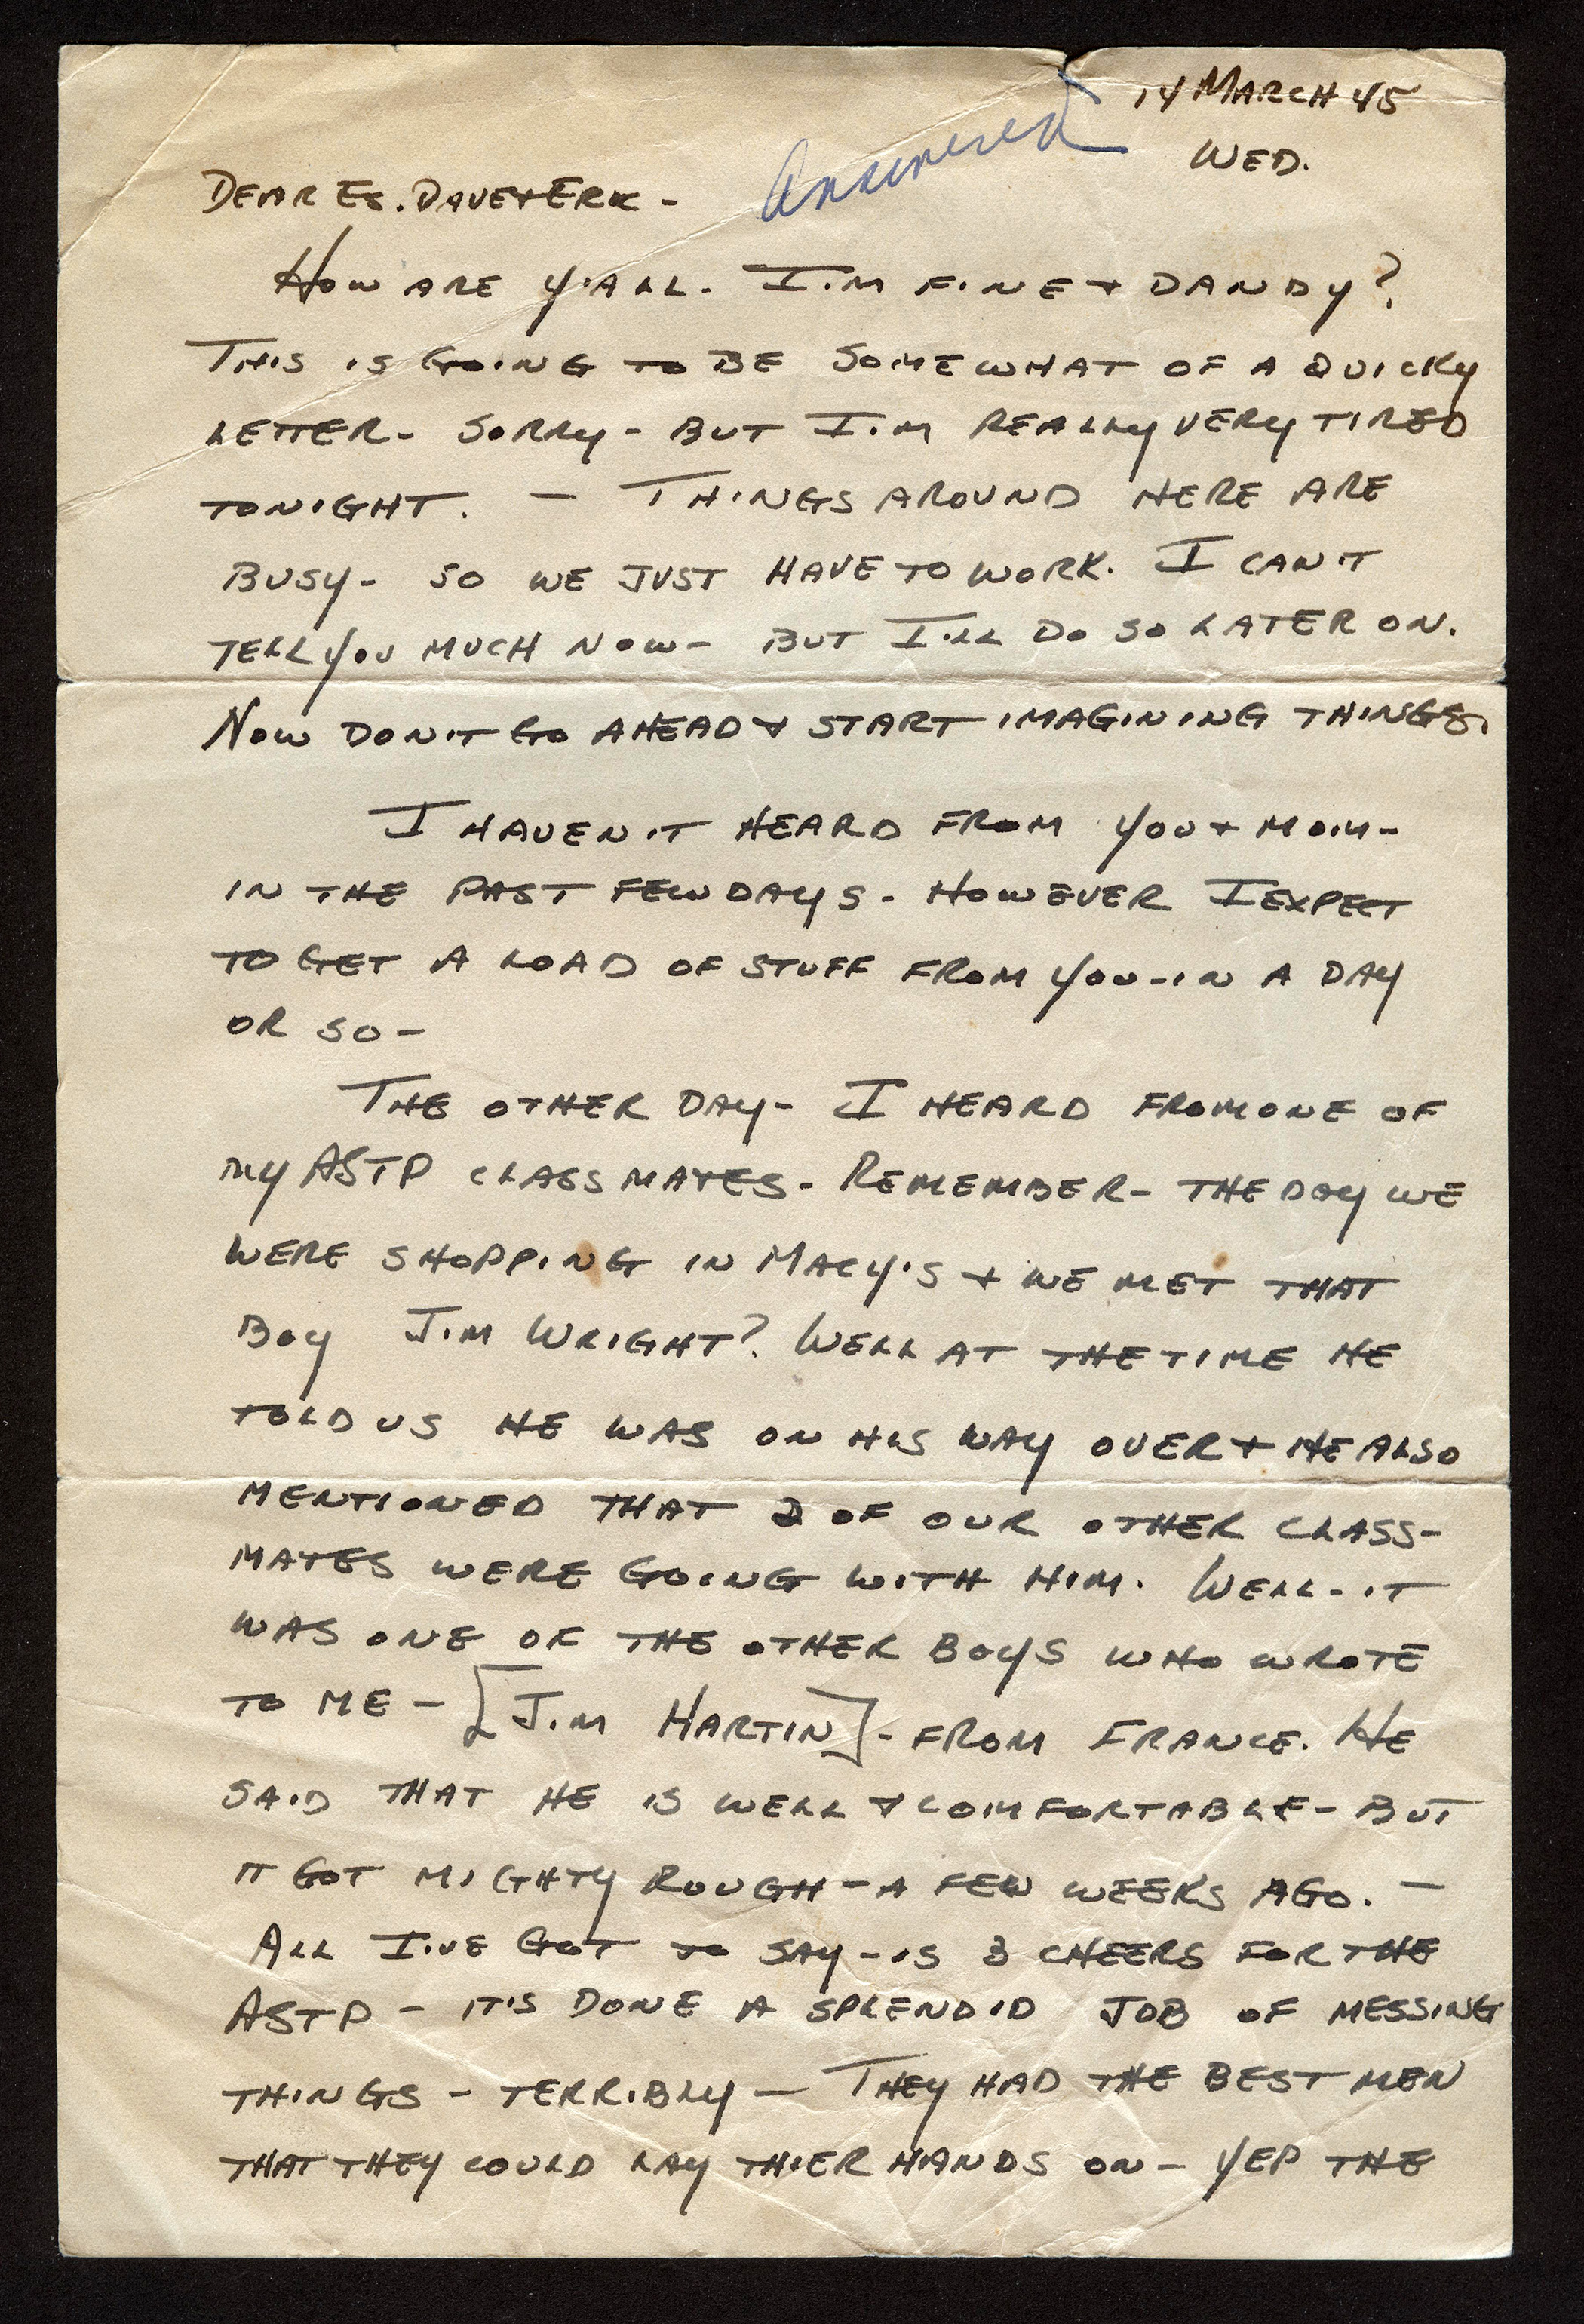 14 MARCH 45
Answered
WED.
DEAR ES. DAVE & ERK -
HOW ARE Y'ALL. I'M FINE & DANDY?
THIS IS GOING TO BE SOMEWHAT OF A QUICKY
LETTER - SORRY - BUT I'M REALLY VERY TIRED
TONIGHT. — THINGS AROUND HERE ARE
BUSY - SO WE JUST HAVE TO WORK. I CAN'T
TELL YOU MUCH NOW - BUT I'LL DO SO LATER ON.
NOW DON'T GO AHEAD & START IMAGINING THINGS.
I HAVEN'T HEARD FROM YOU & MOM -
IN THE PAST FEW DAYS - HOWEVER I EXPECT
TO GET A LOAD OF STUFF FROM YOU - IN A DAY
OR SO -
THE OTHER DAY - I HEARD FROM ONE OF
MY ASTP CLASSMATES - REMEMBER - THE DAY WE
WERE SHOPPING IN MACY'S & WE MET THAT
BOY JIM WRIGHT? WELL AT THE TIME HE
TOLD US HE WAS ON HIS WAY OVER & HE ALSO
MENTIONED THAT 2 OF OUR OTHER CLASS-
MATES WERE GOING WITH HIM. WELL - IT
WAS ONE OF THE OTHER BOYS WHO WROTE
TO ME - [JIM HARTIN] - FROM FRANCE. HE
SAID THAT HE IS WELL & COMFORTABLE - BUT
IT GOT MIGHTY ROUGH - A FEW WEEKS AGO. —
ALL I'VE GOT TO SAY - IS 3 CHEERS FOR THE
ASTP - IT'S DONE A SPLENDID JOB OF MESSING
THINGS - TERRIBLY — THEY HAD THE BEST MEN
THAT THEY COULD LAY THIER HANDS ON - YEP THE